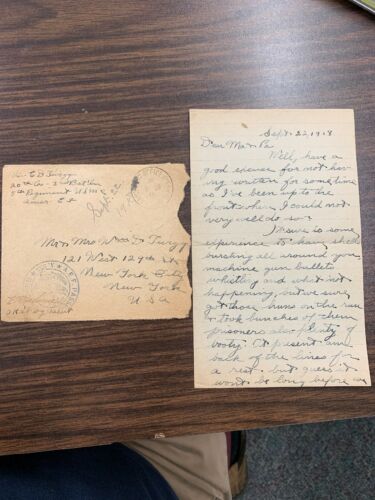 20th Co - 2nd Bat'lion
Regiment U.S.M.C.
Amer. E.F.
Sept. 22
1918
Mr & Mrs Wm D. Twigg
121 West 127th St
New York City
New York
USA
Sept. 22, 1918
Dear Ma & Pa
Well, have a
good excuse for not hav-
ing written for some time
as I've been up to the
front when I could not
very well do so.
I have is some
experience to have shells
bursting all around you,
machine gun bullets
whistling and what not
happening, but we sure
got those huns on the run
& took bunches of them
prisoners also plenty of
booty. At present am
back of the lines for
a rest, but guess it
won't be long before we